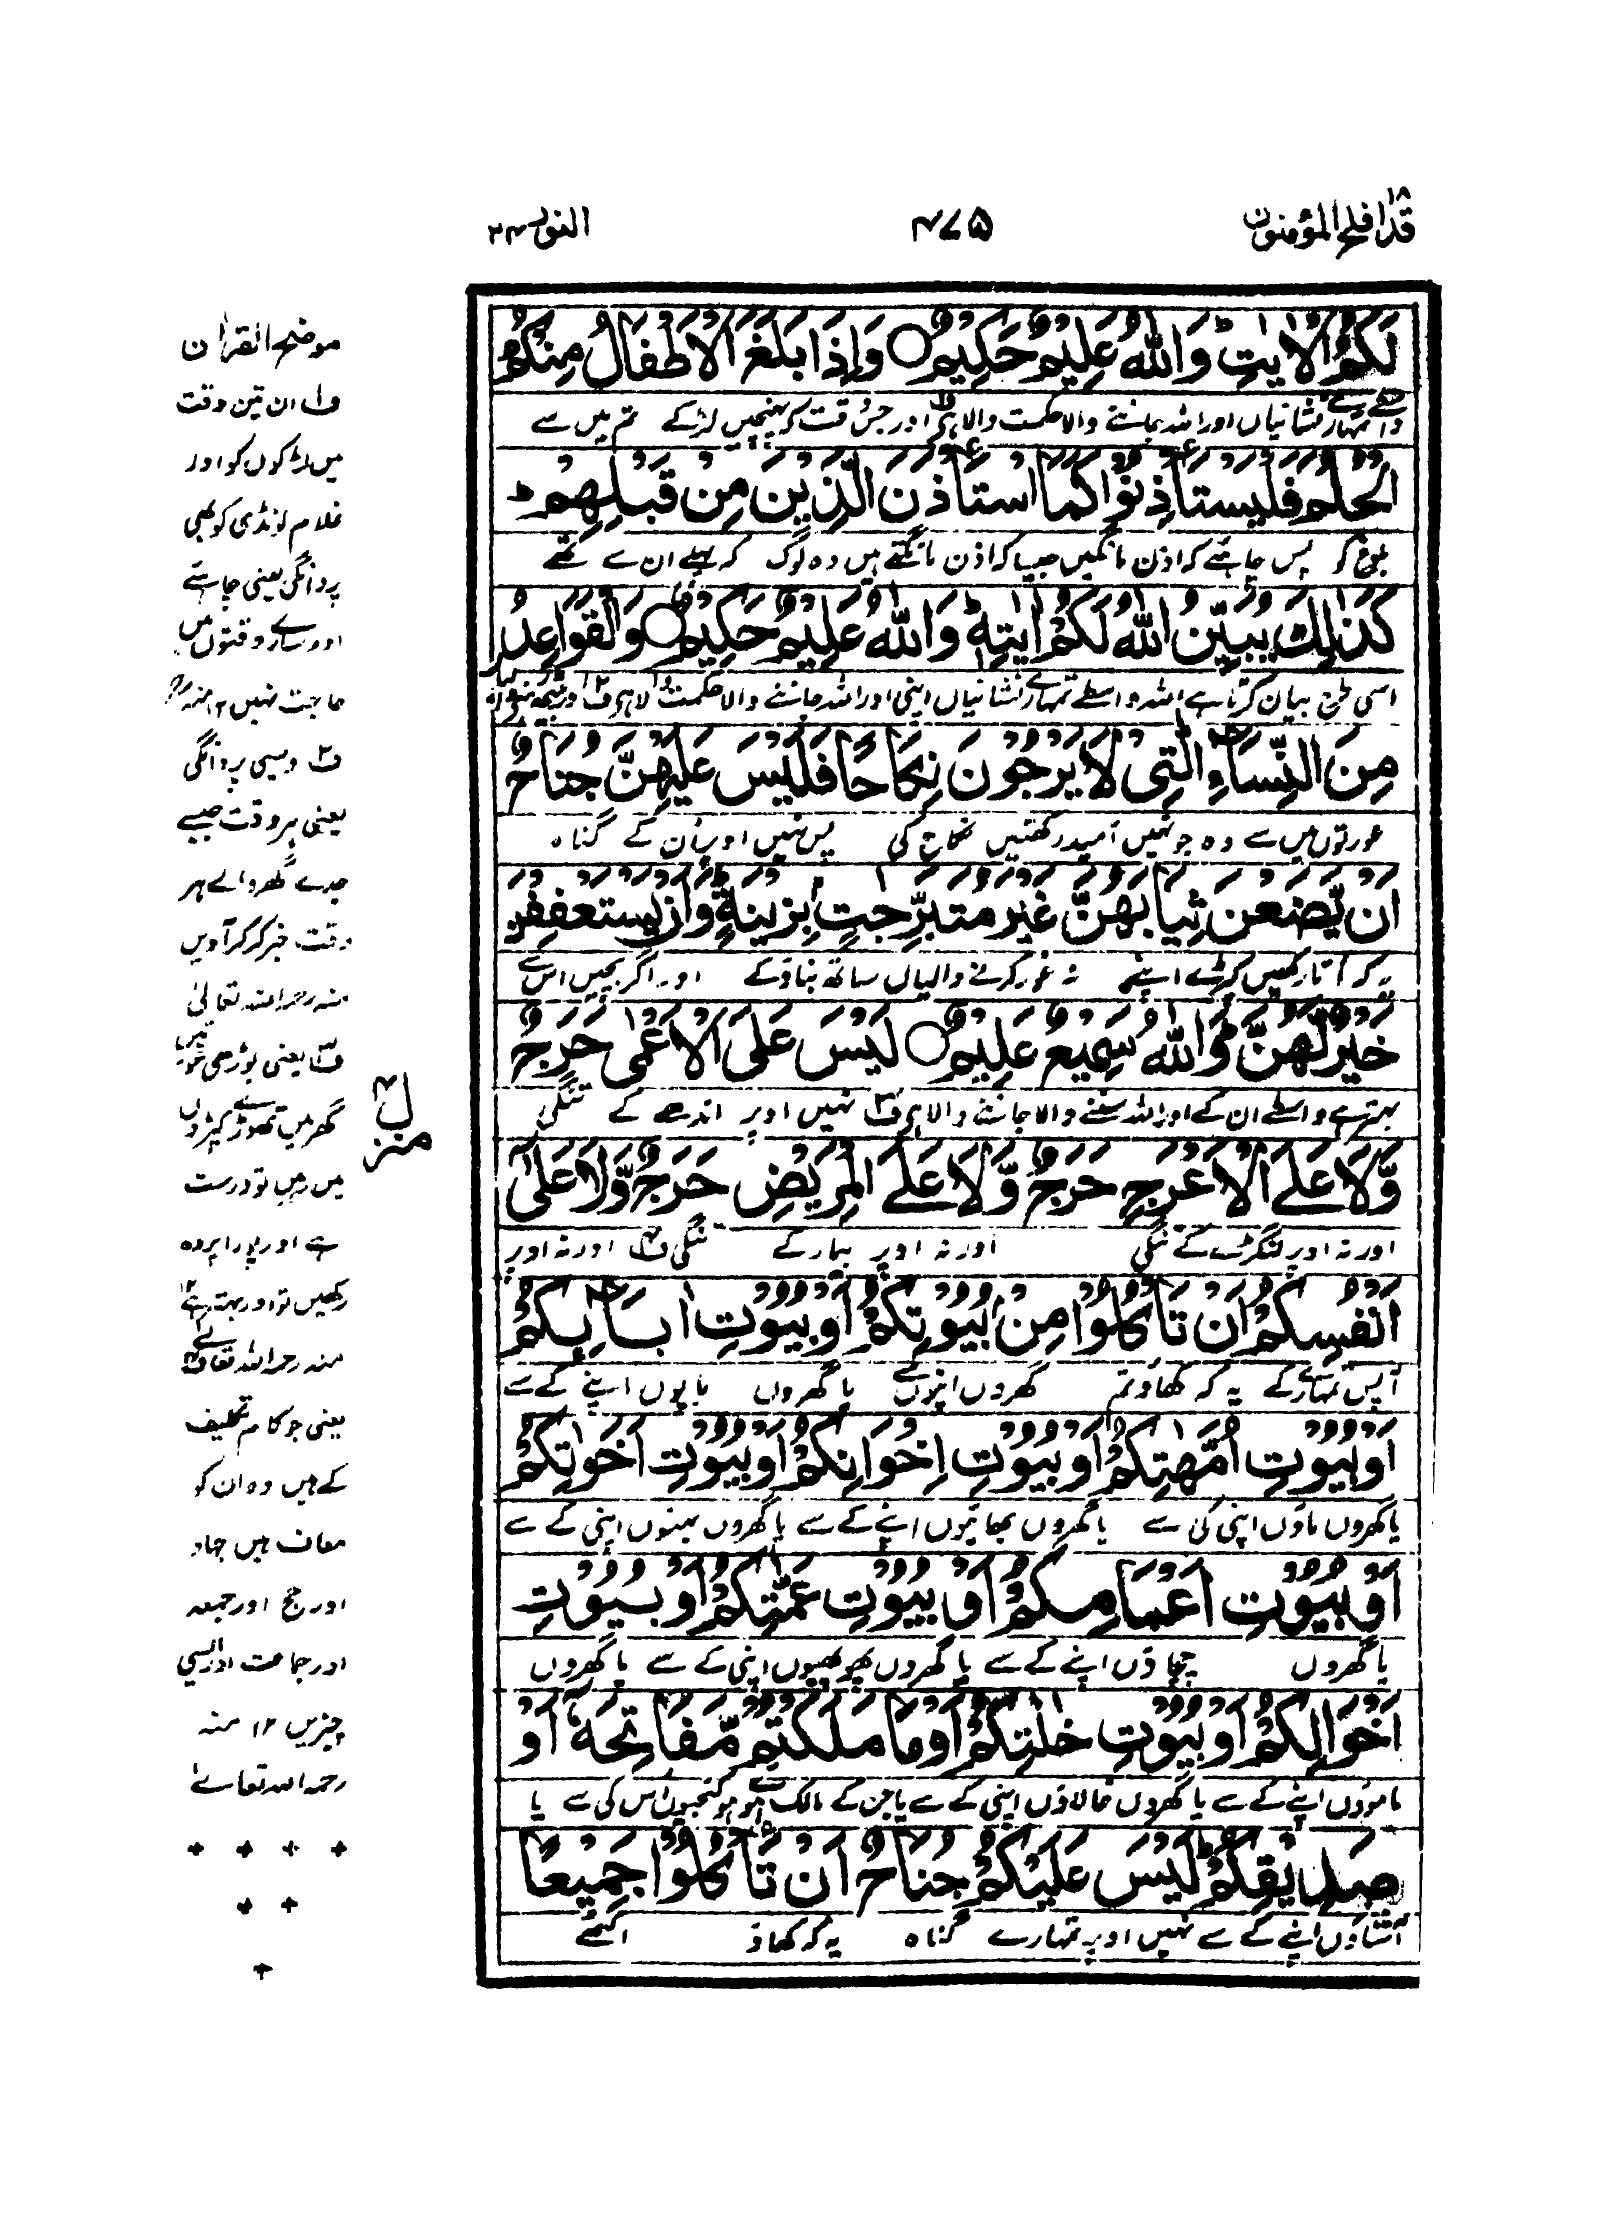 قدافلح المؤمنون ۱۸
۴۷۵
النور ۲۴
لَكُمُ الْاٰيٰتِ ؕ وَاللّٰهُ عَلِيْمٌ حَكِيْمٌ ○ وَاِذَا بَلَغَ الْاَطْفَالُ مِنْكُمُ
واسطے تمہارے نشانیاں اور اللہ جاننے والا حکمت والا ہے ف۱ اور جس وقت کہ پہنچیں لڑکے تم میں سے
الْحُلُمَ فَلْيَسْتَاْذِنُوْا كَمَا اسْتَاْذَنَ الَّذِيْنَ مِنْ قَبْلِهِمْ ؕ
بلوغ کو پس چاہئے کہ اذن مانگیں جیسا کہ اذن مانگتے ہیں وہ لوگ کہ پہلے ان سے تھے
كَذٰلِكَ يُبَيِّنُ اللّٰهُ لَكُمْ اٰيٰتِهٖ ؕ وَاللّٰهُ عَلِيْمٌ حَكِيْمٌ ○ وَالْقَوَاعِدُ
اسی طرح بیان کرتا ہے اللہ واسطے تمہارے نشانیاں اپنی اور اللہ جاننے والا حکمت والا ہے ف۲ اور
مِنَ النِّسَآءِ الّٰتِيْ لَا يَرْجُوْنَ نِكَاحًا فَلَيْسَ عَلَيْهِنَّ جُنَاحٌ
عورتوں میں سے وہ جو نہیں امید رکھتیں نکاح کی پس نہیں اوپر ان کے گناہ
اَنْ يَّضَعْنَ ثِيَابَهُنَّ غَيْرَ مُتَبَرِّجٰتٍۭ بِزِيْنَةٍ ؕ وَاَنْ يَّسْتَعْفِفْنَ
یہ کہ اتار رکھیں کپڑے اپنے نہ کرنے والیاں ساتھ بناؤ کے اور اگر بچیں اس سے
خَيْرٌ لَّهُنَّ ؕ وَاللّٰهُ سَمِيْعٌ عَلِيْمٌ ○ لَيْسَ عَلَى الْاَعْمٰى حَرَجٌ
بہتر ہے واسطے ان کے اور اللہ سننے والا جاننے والا ہے ف۳ نہیں اوپر اندھے کے تنگی
وَّلَا عَلَى الْاَعْرَجِ حَرَجٌ وَّلَا عَلَى الْمَرِيْضِ حَرَجٌ وَّلَا عَلٰٓى
اور نہ اوپر لنگڑے کے تنگی اور نہ اوپر بیمار کے تنگی ف۴ اور نہ اوپر
اَنْفُسِكُمْ اَنْ تَاْكُلُوْا مِنْۢ بُيُوْتِكُمْ اَوْ بُيُوْتِ اٰبَآئِكُمْ
آپس تمہارے کے یہ کہ کھاؤ تم گھروں اپنوں کے یا گھروں باپوں اپنے کے سے
اَوْ بُيُوْتِ اُمَّهٰتِكُمْ اَوْ بُيُوْتِ اِخْوَانِكُمْ اَوْ بُيُوْتِ اَخَوٰتِكُمْ
یا گھروں ماؤں اپنی کی سے یا گھروں بھائیوں اپنے کے سے یا گھروں بہنوں اپنی کے سے
اَوْ بُيُوْتِ اَعْمَامِكُمْ اَوْ بُيُوْتِ عَمّٰتِكُمْ اَوْ بُيُوْتِ
یا گھروں چچاؤں اپنے کے سے یا گھروں پھوپھیوں اپنی کے سے یا گھروں
اَخْوَالِكُمْ اَوْ بُيُوْتِ خٰلٰتِكُمْ اَوْ مَا مَلَكْتُمْ مَّفَاتِحَهٗٓ اَوْ
ماموؤں اپنے کے سے یا گھروں خالاؤں اپنی کے سے یا جن کے مالک ہوئے ہو کنجیوں اس کی سے یا
صَدِيْقِكُمْ ؕ لَيْسَ عَلَيْكُمْ جُنَاحٌ اَنْ تَاْكُلُوْا جَمِيْعًا
آشناؤں اپنے کے سے نہیں اوپر تمہارے گناہ یہ کہ کھاؤ اکٹھے
منزل ۴
موضح القرآن
ف۱ ان تین وقت
میں لڑکوں کو اور
غلام لونڈی کو بھی
پروانگی یعنی چاہئے
اور سارے وقتوں میں
حاجت نہیں ۱۲ منہ رح
ف۲ ویسی پروانگی
یعنی ہر وقت جیسے
جدے گھر والے ہر
وقت خبر کر کر آویں
منہ رحمہ اللہ تعالیٰ
ف۳ یعنی بوڑھی عورتیں
گھر میں تھوڑے کپڑوں
میں رہیں تو درست
ہے اور پورا پردہ
رکھیں تو اور بہتر ہے ۱۲
منہ رحمہ اللہ تعالے ف۴
یعنی جو کام تکلیف
کے ہیں وہ ان کو
معاف ہیں جہاد
اور حج اور جمعہ
اور جماعت اور ایسی
چیزیں ۱۲ منہ
رحمہ اللہ تعالے